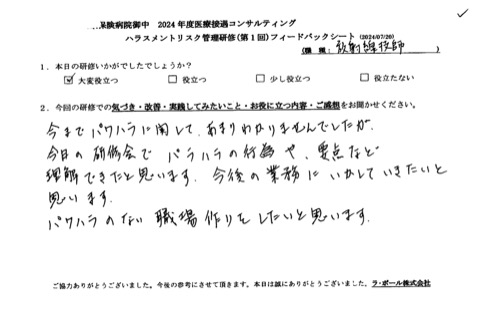 保険病院御中 2024年度医療接遇コンサルティング
ハラスメントリスク管理研修(第1回)フィードバックシート (2024/07/20)
(職種: 放射線技師)
1. 本日の研修いかがでしたでしょうか?
☑ 大変役立つ □ 役立つ □ 少し役立つ □ 役立たない
2. 今回の研修での気づき・改善・実践してみたいこと・お役に立つ内容・ご感想をお聞かせください。
今までパワハラに関して、あまりわかりませんでしたが、
今日の研修会でパラハラの行為や、要点など
理解できたと思います。今後の業務にいかしていきたいと
思います。
パワハラのない職場作りをしたいと思います。
ご協力ありがとうございました。今後の参考にさせて頂きます。本日は誠にありがとうございました。ラ・ポール株式会社